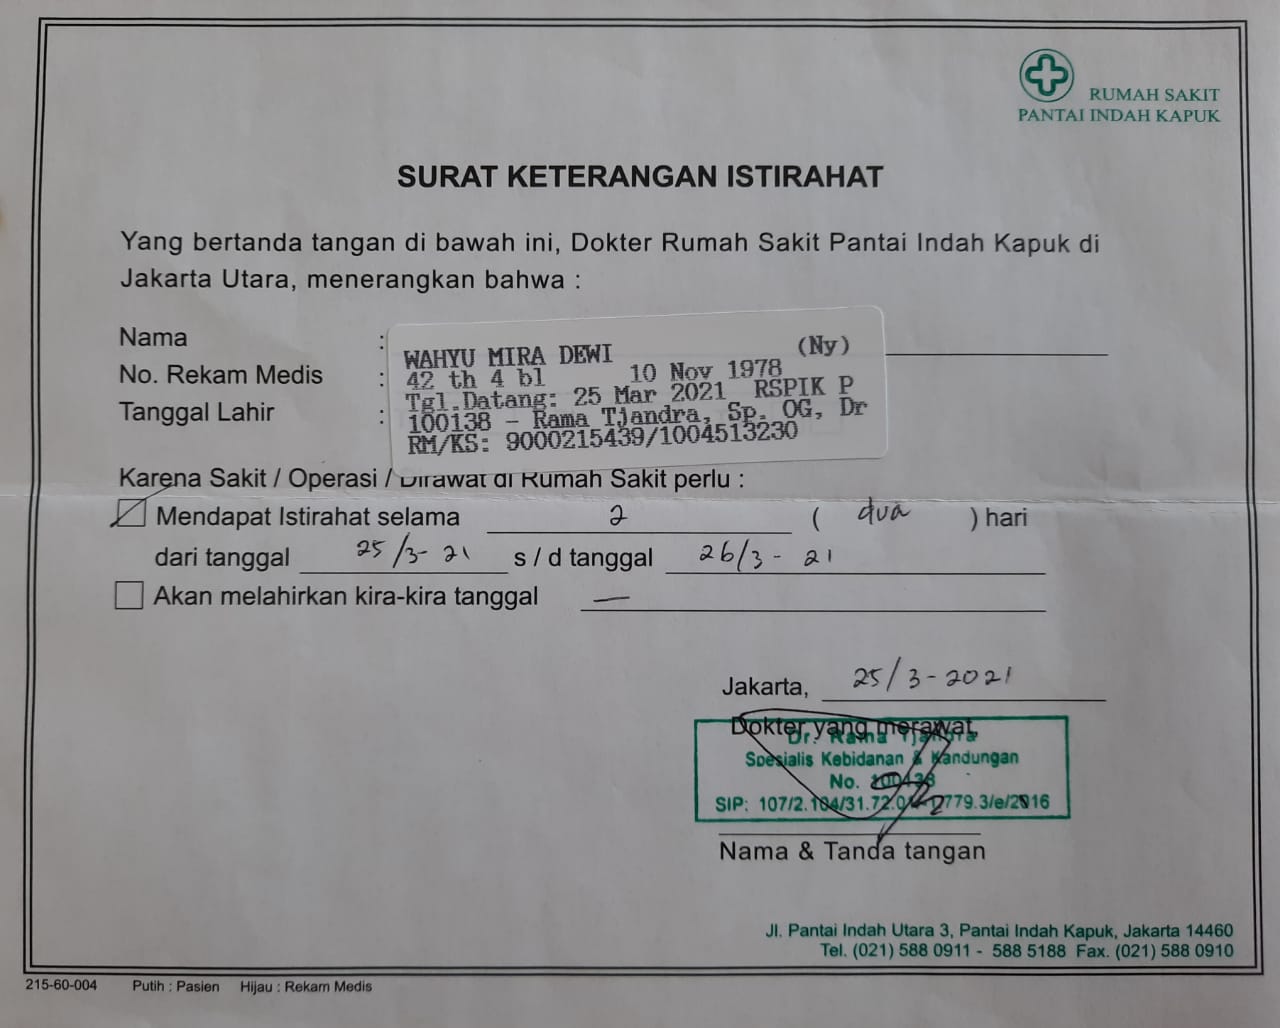 RUMAH SAKIT
PANTAI INDAH KAPUK
SURAT KETERANGAN ISTIRAHAT
Yang bertanda tangan di bawah ini, Dokter Rumah Sakit Pantai Indah Kapuk di
Jakarta Utara, menerangkan bahwa :
Nama :
No. Rekam Medis :
Tanggal Lahir :
WAHYU MIRA DEWI (Ny)
42 th 4 bl 10 Nov 1978
Tgl.Datang: 25 Mar 2021 RSPIK P
100138 - Rama Tjandra, Sp. OG, Dr
RM/KS: 9000215439/1004513230
Karena Sakit / Operasi / Dirawat di Rumah Sakit perlu :
Mendapat Istirahat selama 2 ( dua ) hari
dari tanggal 25/3- 21 s / d tanggal 26/3 - 21
Akan melahirkan kira-kira tanggal —
Jakarta, 25/3-2021
Dokter yang merawat,
Dr. Rama Tjandra
Spesialis Kebidanan & Kandungan
No. 100138
SIP: 107/2.104/31.72.0
779.3/e/2016
Nama & Tanda tangan
Jl. Pantai Indah Utara 3, Pantai Indah Kapuk, Jakarta 14460
Tel. (021) 588 0911 - 588 5188 Fax. (021) 588 0910
215-60-004 Putih : Pasien Hijau : Rekam Medis